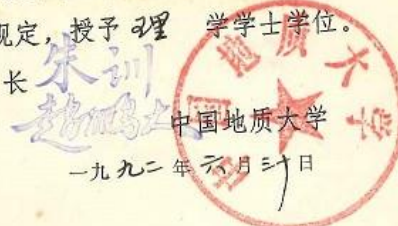 规定，授予 理 学学士学位。
长
朱训
赵鹏大
中国地质大学
一九九二年六月三十日
中国地质大学